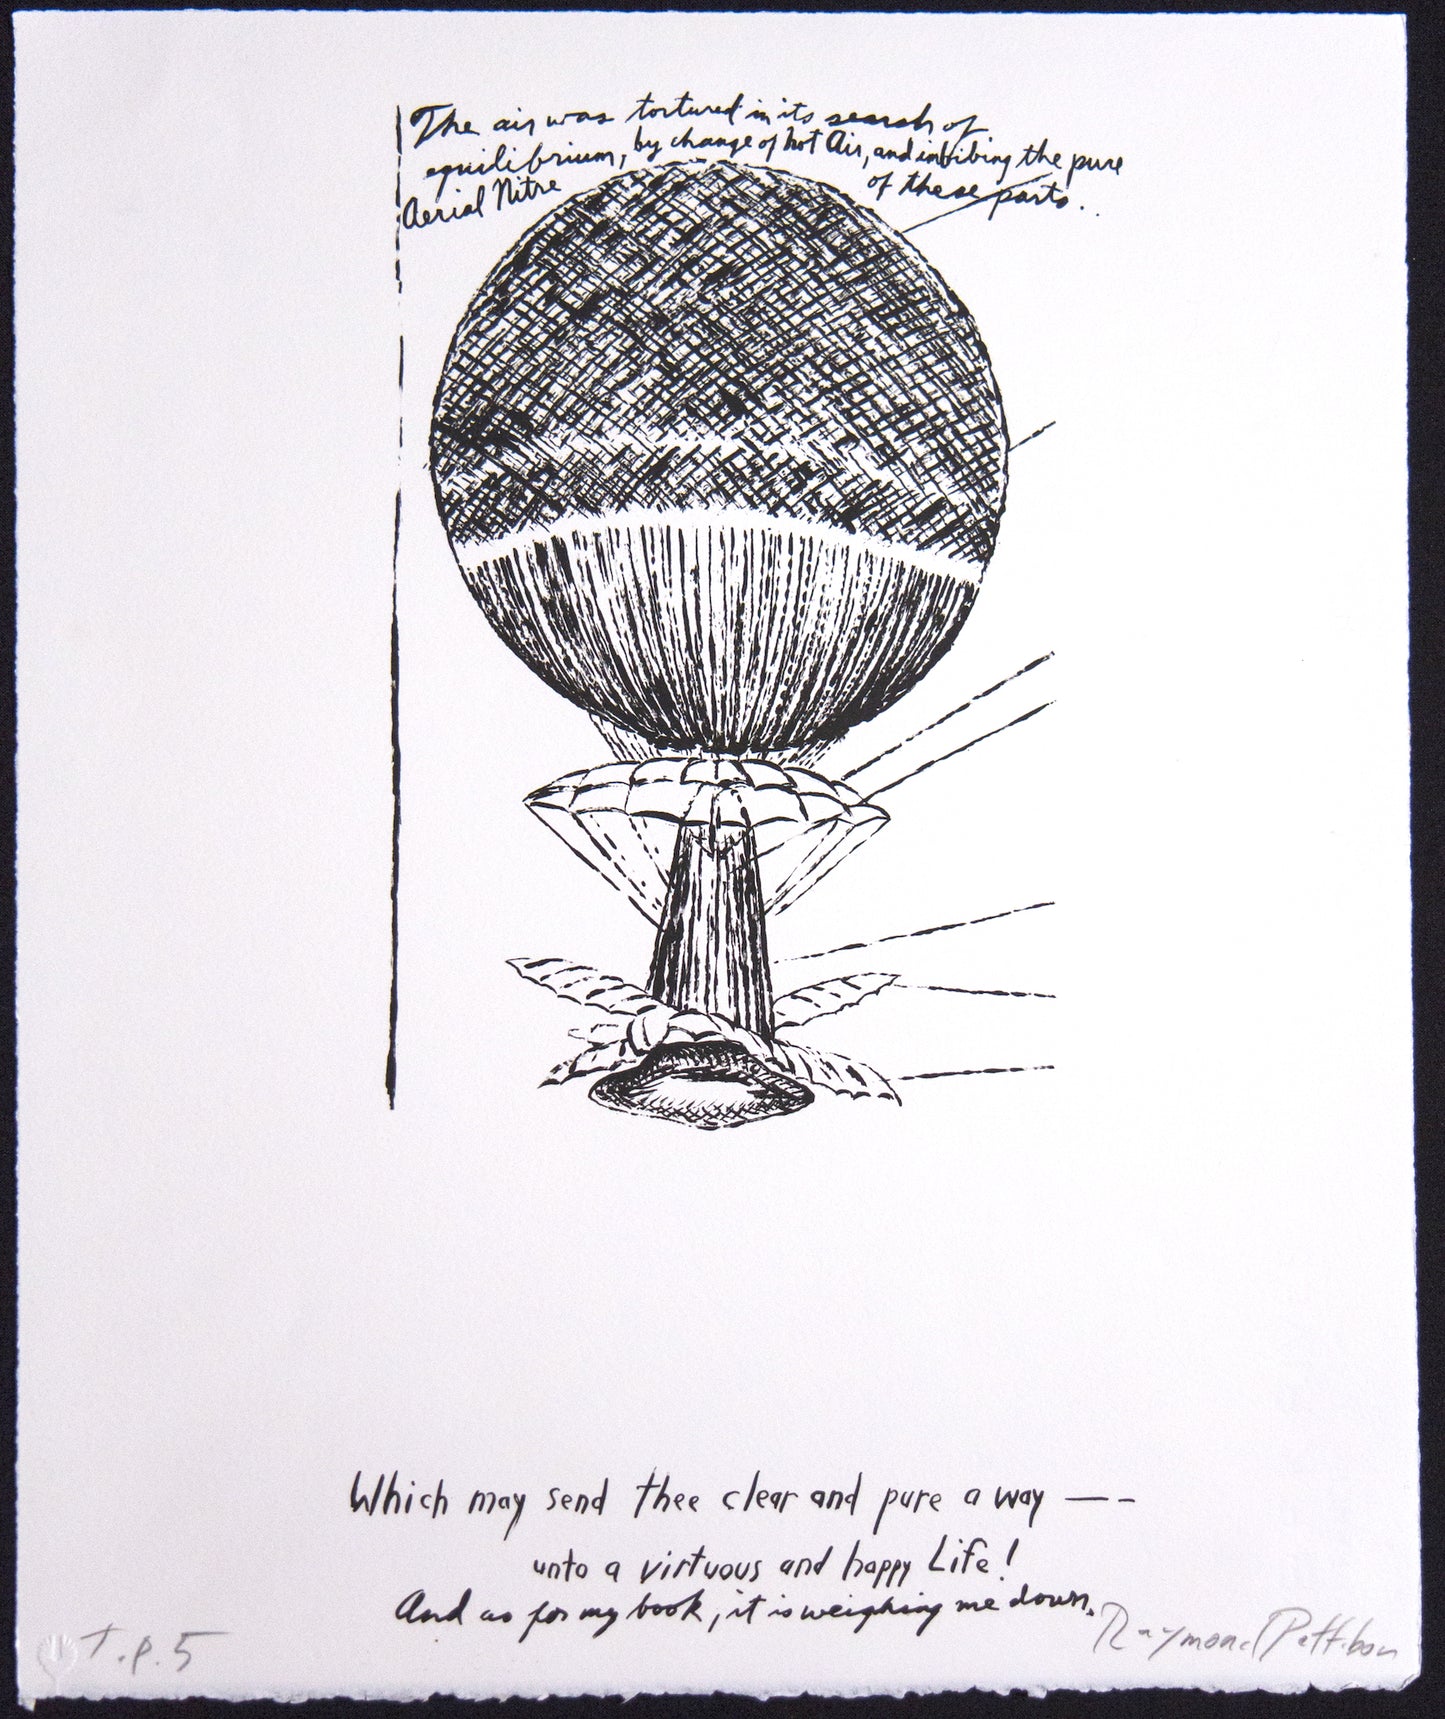 The air was tortured in its search of
equilibrium, by change of hot Air, and imbibing the pure
Aerial Nitre of these parts.
Which may send thee clear and pure a way — -
unto a virtuous and happy Life!
And as for my book, it is weighing me down.
T.P.5
Raymond Pettibon